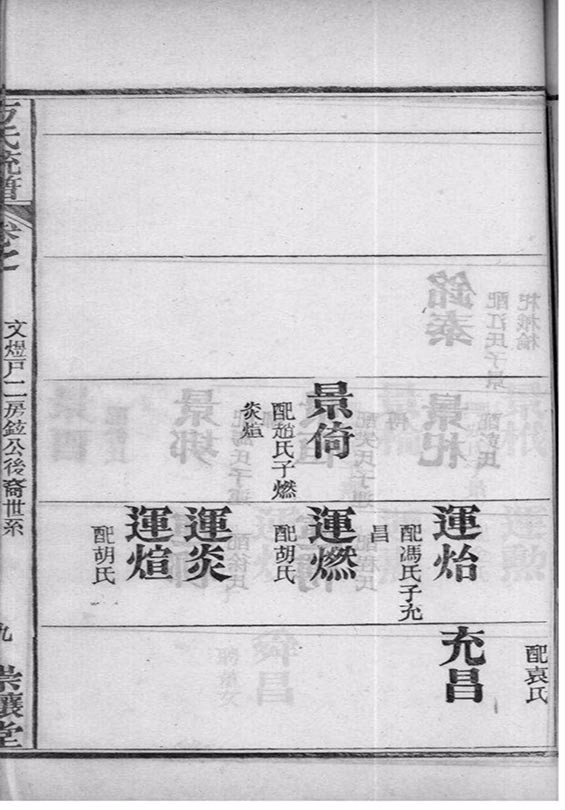 配袁氏
景倚
配趙氏子燃
炎煊
運怡
配馮氏子允
昌
運燃
配胡氏
運炎
運煊
配胡氏
充昌
方氏統譜
卷之
文煜戶二房鉉公後裔世系
九
崇讓堂